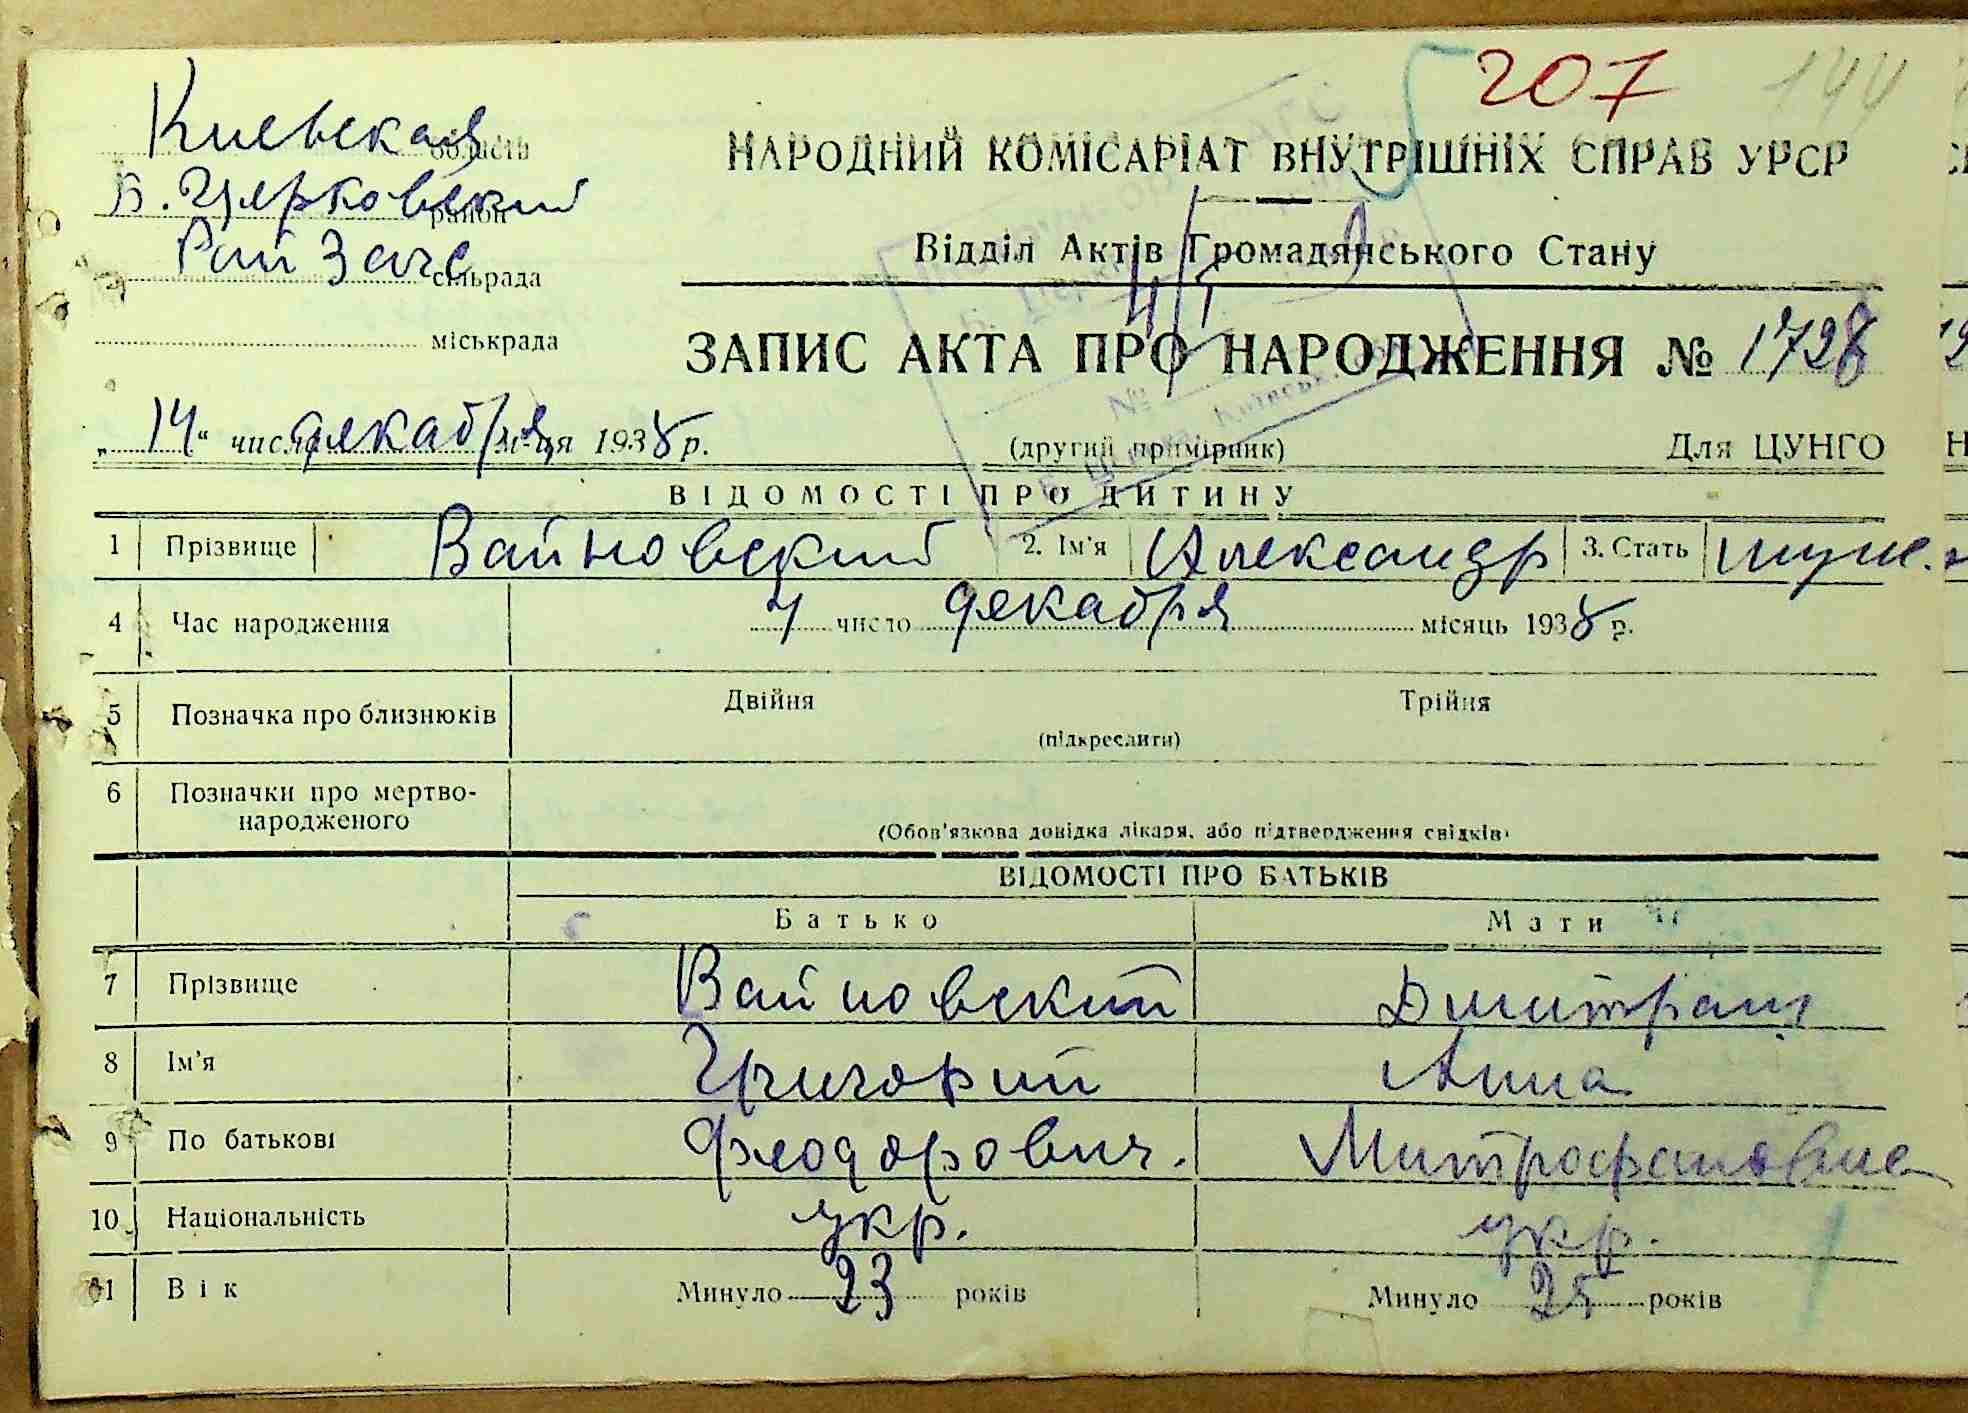 207 144
Киевская область
Б. Церковский район
Рай Загс сільрада
міськрада
НАРОДНИЙ КОМІСАРІАТ ВНУТРІШНІХ СПРАВ УРСР
Відділ Актів Громадянського Стану
ЗАПИС АКТА ПРО НАРОДЖЕННЯ № 1728
„14“ числа декабря м-ця 1938 р.
(другий примірник)
Для ЦУНГО
ВІДОМОСТІ ПРО ДИТИНУ
1 Прізвище Вайновский 2. Ім'я Александр 3. Стать муж.
4 Час народження число декабря місяць 1938 р.
5 Позначка про близнюків Двійня Трійня
(підкреслити)
6 Позначки про мертво-
народженого
(Обов'язкова довідка лікаря, або підтвердження свідків)
ВІДОМОСТІ ПРО БАТЬКІВ
Батько Мати
7 Прізвище Вайновский
8 Ім'я Григорий Анна
9 По батькові Феодорович. Митрофановна
10 Національність укр. укр.
11 Вік Минуло 23 років Минуло 25 років